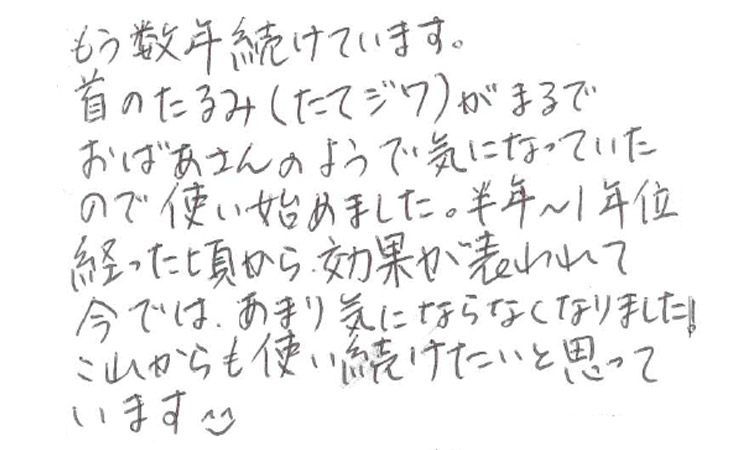 もう数年続けています。
首のたるみ(たてジワ)がまるで
おばあさんのようで気になっていた
ので使い始めました。半年〜1年位
経った頃から、効果が表われて
今では、あまり気にならなくなりました!
これからも使い続けたいと思って
います